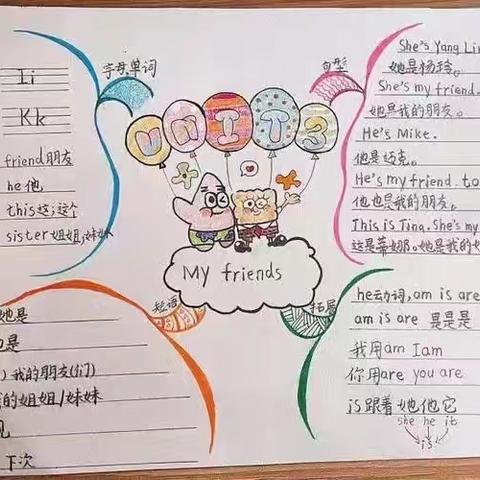 字母,单词
Ii
Kk
friend朋友
he他
this这;这个
sister姐姐;妹妹
句型
She's Yang Lin
她是杨玲。
She's my friend.
她是我的朋友。
He's Mike.
他是迈克。
He's my friend. to
他也是我的朋友。
This is Tina. She's my
这是蒂娜。她是我的
UNIT3
My friends
短语
她是
是
)我的朋友(们)
的姐姐/妹妹
见
下次
拓展
be动词, am is are
am is are 是是是
我用am I am
你用are you are
is跟着她他它
she he it
is